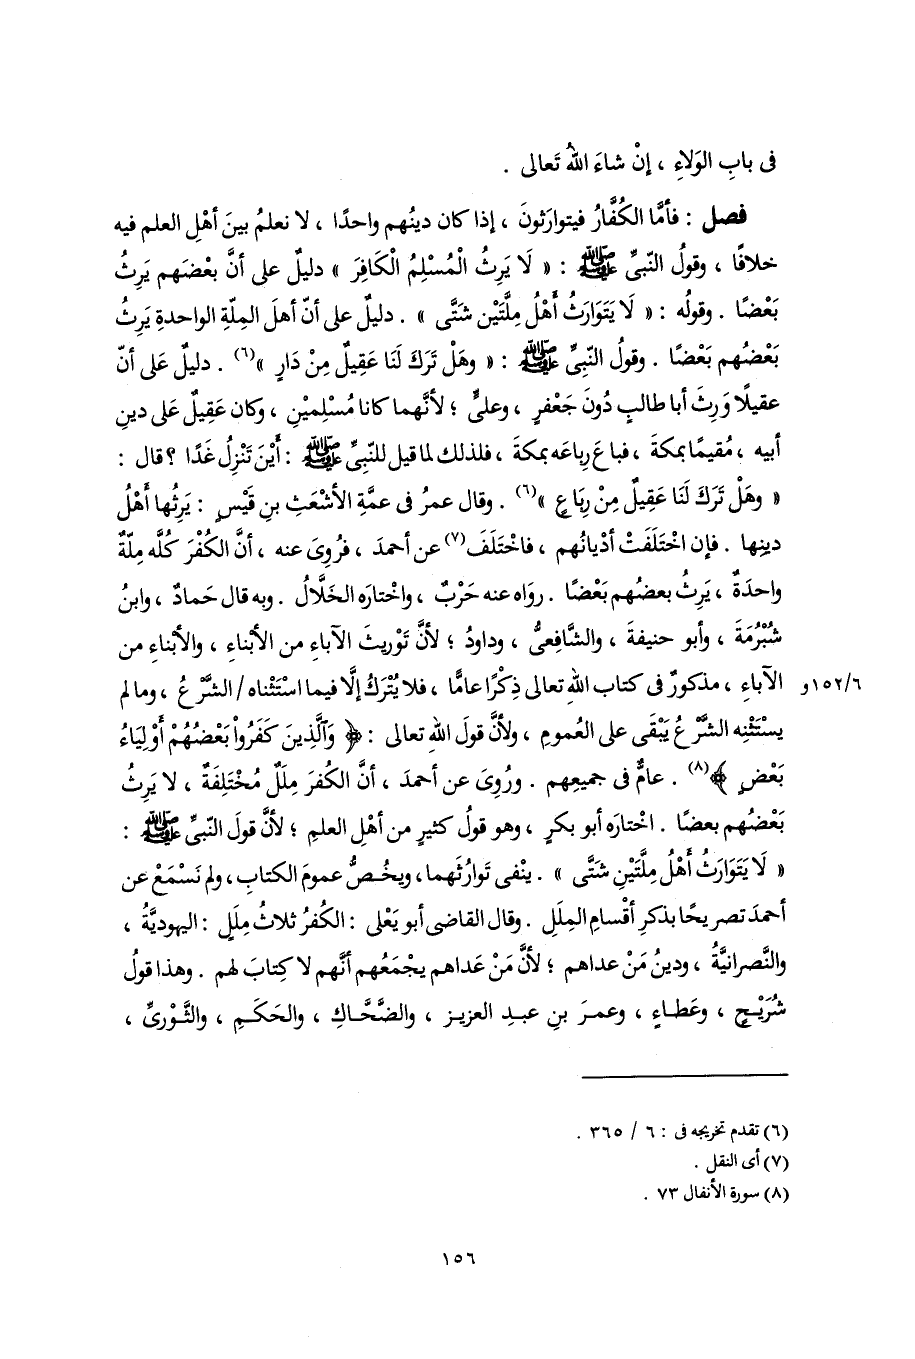 فى بابِ الوَلاءِ ، إنْ شاءَ اللهُ تَعالى .
فصل : فأمَّا الكُفَّارُ فيتوارَثونَ ، إذا كان دينُهم واحدًا ، لا نعلمُ بينَ أهْلِ العلم فيه
خلافًا ، وقولُ النّبىِّ ﷺ : « لَا يَرِثُ الْمُسْلِمُ الْكَافِرَ » دليلٌ على أنَّ بعْضَهم يَرِثُ
بَعْضًا . وقولُه : « لَا يَتَوَارَثُ أَهْلُ مِلَّتَيْنِ شَتَّى » . دليلٌ على أنّ أهلَ المِلّةِ الواحدةِ يَرِثُ
بَعْضُهم بَعْضًا . وقولُ النّبِىِّ ﷺ : « وهَلْ تَرَكَ لَنَا عَقِيلٌ مِنْ دَارٍ »(٦) . دليلٌ على أنّ
عقيلًا وَرِثَ أبا طالبٍ دُونَ جَعْفرٍ ، وعلىٍّ ؛ لأنَّهما كانا مُسْلِميْنِ ، وكان عَقِيلٌ عَلى دينِ
أبيه ، مُقيمًا بمكةَ ، فباعَ رِباعَه بمكةَ ، فلذلك لما قيل للنّبىِّ ﷺ : أَيْنَ تَنْزِلُ غَدًا ؟ قال :
« وهَلْ تَرَكَ لَنَا عَقِيلٌ مِنْ رِبَاعٍ »(٦) . وقال عمرُ فى عمَّةِ الأشْعَثِ بنِ قَيْسٍ : يَرِثُها أَهْلُ
دينِها . فإن اخْتَلَفَتْ أدْيانُهم ، فاخْتَلَفَ(٧) عن أحمدَ ، فرُوِىَ عنه ، أنَّ الكُفْرَ كُلَّه مِلّةٌ
واحدَةٌ ، يَرِثُ بعضُهم بَعْضًا . رواَه عنه حَرْبٌ ، واخْتارَه الخَلَّالُ . وبه قال حَمادٌ ، وابنُ
شُبْرُمَةَ ، وأبو حنيفةَ ، والشَّافِعىُّ ، وداودُ ؛ لأنَّ تَوْريثَ الآباءِ من الأبناءِ ، والأبْناءِ من
الآباءِ ، مذكورٌ فى كتاب اللهِ تعالى ذِكْرًا عامًّا ، فلا يُتْرَكُ إلَّا فيما اسْتَثْناه / الشَّرْعُ ، وما لم
١٥٢/٦و
يسْتَثْنِه الشَّرْعُ يَبْقَى على العُمومِ ، ولأنَّ قولَ اللهِ تعالى : ﴿ وَآلَّذِينَ كَفَرُواْ بَعْضُهُمْ أَوْلِيَاءُ
بَعْضٍ ﴾(٨) . عامٌّ فى جميعِهم . ورُوِىَ عن أحمدَ ، أنَّ الكُفرَ مِلَلٌ مُخْتَلِفَةٌ ، لا يَرِثُ
بَعْضُهم بعضًا . اخْتارَه أبو بكرٍ ، وهو قولُ كثيرٍ من أهْلِ العلمِ ؛ لأنَّ قولَ النّبىِّ ﷺ :
« لَا يَتَوَارَثُ أَهْلُ مِلَّتَيْنِ شَتَّى » . ينْفى تَوارُثَهما ، ويخُصُّ عمومَ الكتابِ ، ولم نَسْمَعْ عن
أحمدَ تصريحًا بذكرِ أقْسامِ المِلَلِ . وقال القاضى أبو يَعْلى : الكُفرُ ثلاثُ مِلَلٍ : اليهوديَّةُ ،
والنَّصرانيَّةُ ، ودينُ مَنْ عداهم ؛ لأنَّ مَنْ عَداهم يجْمَعُهم أنَّهم لا كِتابَ لهم . وهذا قولُ
شُرَيْحٍ ، وعَطاءٍ ، وعمرَ بنِ عبدِ العزيزِ ، والضَّحَّاكِ ، والحَكَمِ ، والثَّوْرِىِّ ،
(٦) تقدم تخريجه فى : ٦ / ٣٦٥ .
(٧) أى النقل .
(٨) سورة الأنفال ٧٣ .
١٥٦